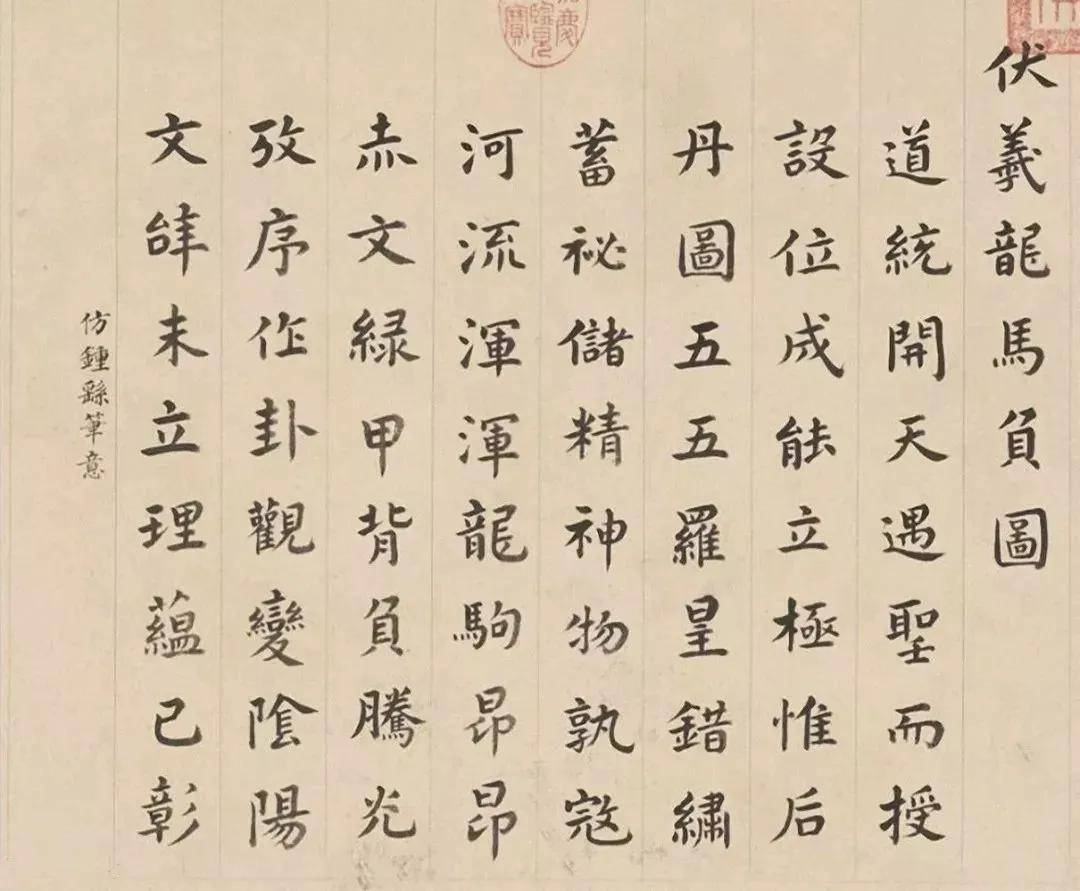 伏羲龍馬負圖
道統開天遇聖而授
設位成能立極惟后
丹圖五五羅星錯繡
蓄祕儲精神物孰寇
河流渾渾龍駒昂昂
赤文緑甲背負騰光
攷序作卦觀變陰陽
文辝未立理蘊已彰
仿鍾繇筆意